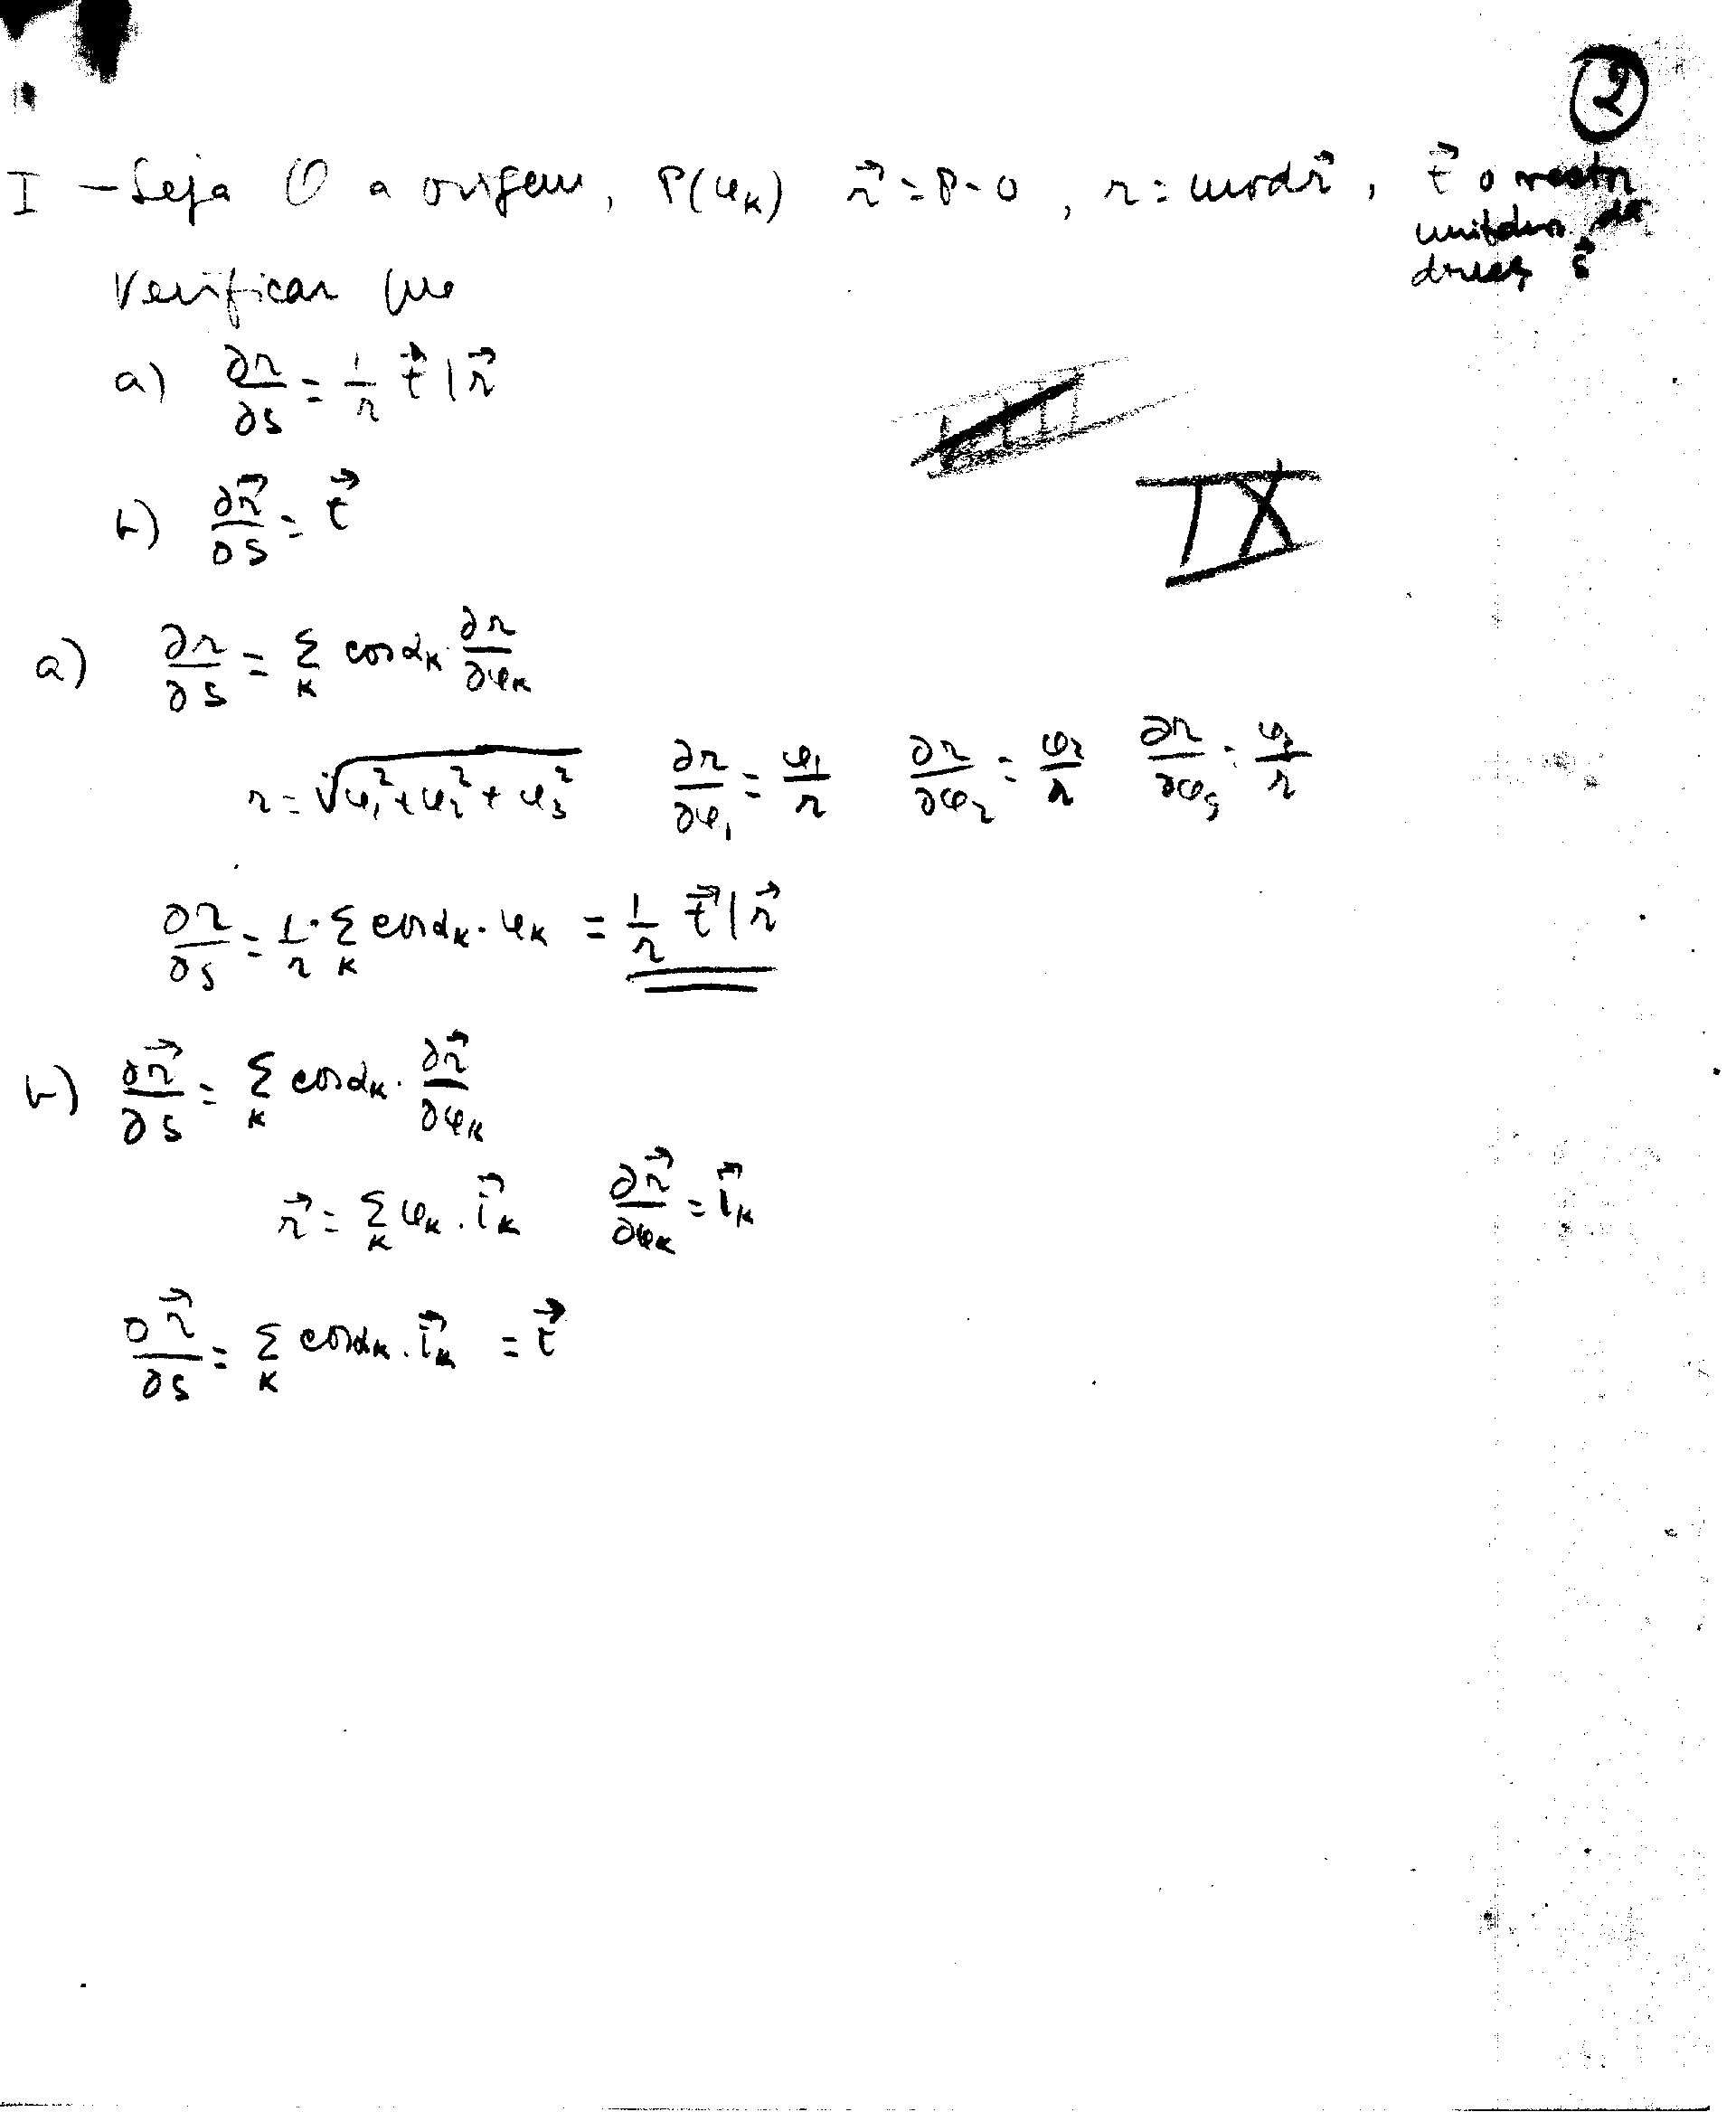 ②
I - Seja O a origem, P(φₖ) r⃗ = P-O, r = mod r⃗, t⃗ o vector
unitário da
direcç s⃗
Verificar que
a) ∂r/∂s = 1/r t⃗ | r⃗
b) ∂r⃗/∂s = t⃗
IX
a) ∂r/∂s = Σₖ cos αₖ · ∂r/∂φₖ
r = √(φ₁² + φ₂² + φ₃²) ∂r/∂φ₁ = φ₁/r ∂r/∂φ₂ = φ₂/r ∂r/∂φ₃ = φ₃/r
∂r/∂s = 1/r · Σₖ cos αₖ · φₖ = 1/r t⃗ | r⃗
b) ∂r⃗/∂s = Σₖ cos αₖ · ∂r⃗/∂φₖ
r⃗ = Σₖ φₖ · i⃗ₖ ∂r⃗/∂φₖ = i⃗ₖ
∂r⃗/∂s = Σₖ cos αₖ · i⃗ₖ = t⃗